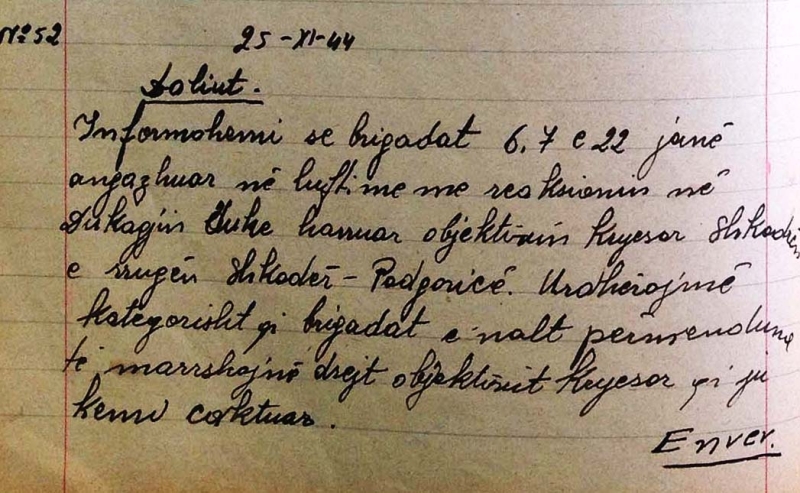 Nº 52
25-XI-44
Aoliut.
Informohemi se brigadat 6, 7 e 22 janë
angazhuar në luftime me reaksionin në
Dukagjin duke harruar objektivin kryesor Shkodrën
e rrugën Shkodër - Podgoricë. Urdhërojmë
kategorisht qi brigadat e nalt përmenduna
të marrshojnë drejt objektivit kryesor qi ju
kemi caktuar.
Enver.